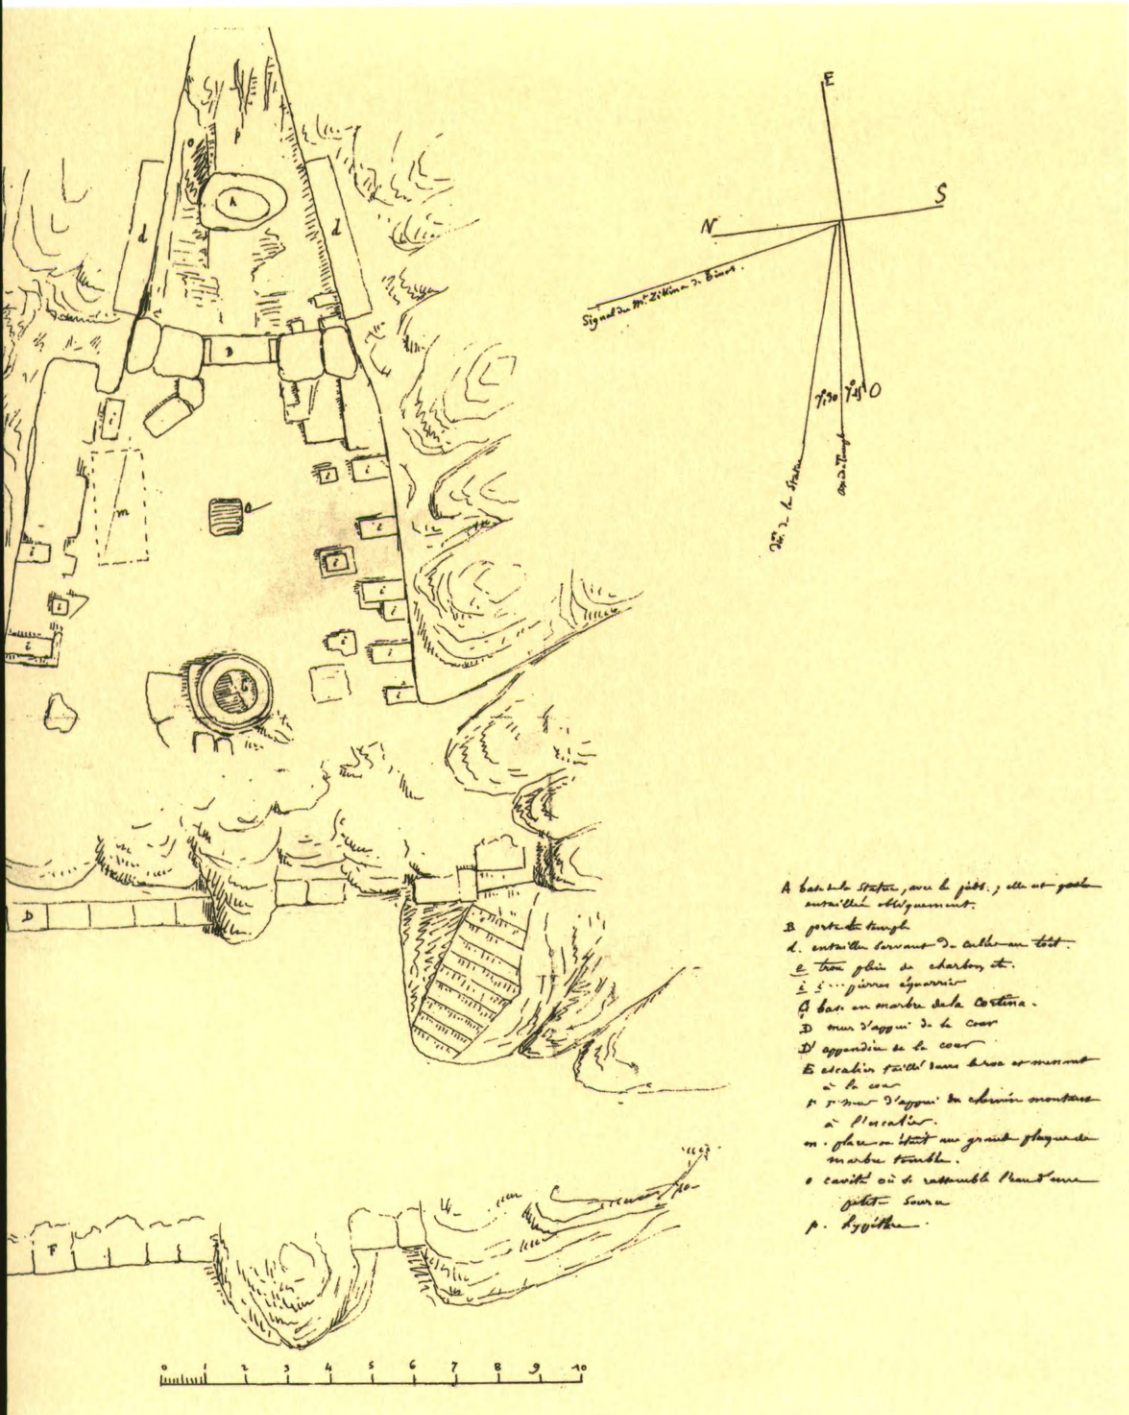 E
S
N
Signal du Mt Zikina de Tinos.
7°30 7°45 O
dirn. de la Statue
axe du Temple
A
o
p
d
d
B
m
e
i
i
i
i
i
i
i
i
i
i
i
C
D
F
0 1 2 3 4 5 6 7 8 9 10
A base de la Statue, avec le pied ; elle est
entaillée obliquement.
B porte du temple
d. entailles servant de culée au toit.
e trou plein de charbons etc.
i i ... pierres équarries
C base en marbre de la Cortina.
D mur d'appui de la cour
D' appendice de la cour
E escalier taillé dans le roc et menant
à la cour
mur d'appui du chemin montant
à l'escalier.
m. place où était une grande plaque de
marbre tombée.
o cavité où se rassemble l'eau d'une
petite source
p. hypèthre.